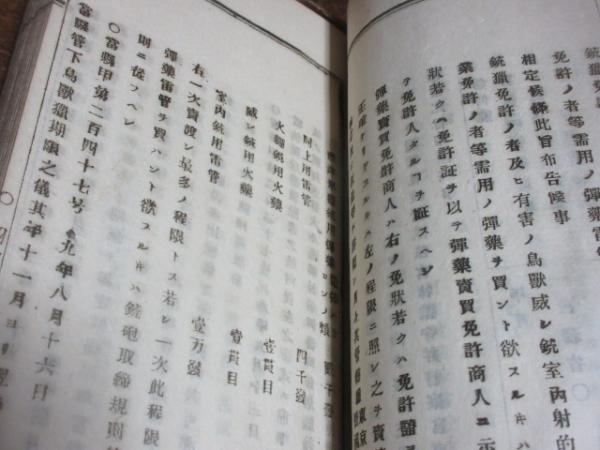 銃獵免
免許ノ者等需用ノ彈藥雷管
相定候條此旨布告候事
銃獵免許ノ者及ヒ有害ノ鳥獸威シ銃室內射的
業免許ノ者等需用ノ彈藥ヲ買ント欲スルキハ
狀若クハ免許証ヲ以テ彈藥賣買免許商人ニ示
テ免許人タルコヲ証スヘシ
彈藥賣買免許商人ハ右ノ免狀若クハ免許證
左ノ程限ニ照シ之ヲ賣
千發
同上用雷管 四千發
火繩銃用火藥 壹貫目
威シ銃用火藥 壹貫目
室內銃用雷管 壹万發
右一次賣渡シ最多ノ程限トス若シ一次此程限
彈藥雷管ヲ買ハント欲スルキハ銃砲取締規則
則ニ從フヘシ
〇當縣甲第二百四十七号 九年八月十六日
當縣管下鳥獸獵期限之儀其年十一月ヨリ翌